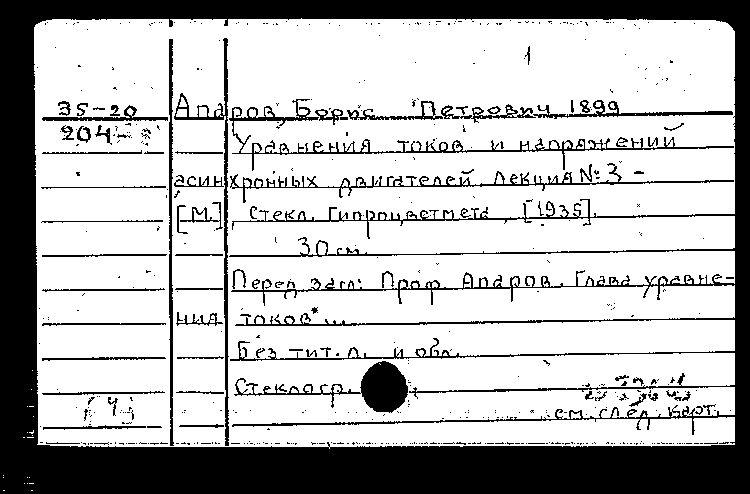 1
35-20 Апаров, Борис Петрович 1899
204-
Уравнения токов и напряжений
асинхронных двигателей. Лекция №3 -
[М.], Стекл. Гипроцветмета, [1935].
30 см.
Перед загл: Проф. Апаров. Глава уравне-
ния токов*...
Без тит. л. и обл.
Стеклогр.
[4]
см. след. карт.